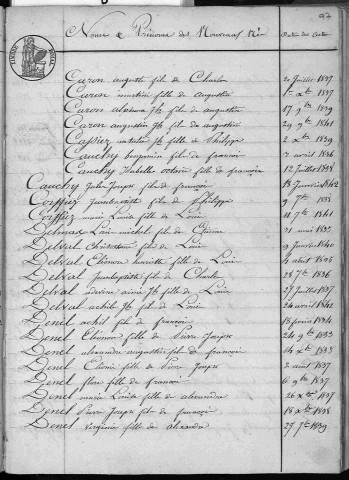 97
Noms & Prénoms des Nouveaux Nés
Dates des Actes
Caron auguste fils de Charles 20 Juillet 1837
Caron martine fille de augustin 1er Xbre
Caron alexandre Jh fils de augustin 17 9bre 1839
Caron augustin Jh fils de augustin 29 9bre 1841
Cassiez natalie Jh fille de Philippe 2 Xbre 1839
Cauchy benjamin fils de francois 7 avril 1836
Cauchy Isabelle octavie fille de francois 12 Juillet 1838
Cauchy Jules Joseph fils de francois 18 Janvier 1842
Coiffiez Jeanbaptiste fils de Philippe 9 7bre 1838
Coiffiez marie Louise fille de Louis 11 7bre 1841
Delmas Louis michel fils de Etienne 21 mai 1835
Delval Christine fille de Louis 9 Janvier 1840
Delval Eléonore henriette fille de Louis 4 avril 1836
Delval Jeanbaptiste fils de Charles 28 7bre 1836
Delval aimé Jh fils de Louis 27 Juillet 1837
Delval achile Jh fils de Louis 24 avril 1842
Denel achile fils de francois 18 février 1834
Denel Eleonore fille de Pierre Joseph 24 9bre 1833
Denel alexandre augustin fils de francois 14 Xbre 1835
Denel fille de Pierre Joseph 2 avril 1837
Denel fille de francois 6 9bre 1837
Denel marie Louise fille de alexandre 26 Xbre 1837
Denel Pierre Joseph fils de francois 18 Xbre 1838
Denel virginie fille de alexandre 27 7bre 1839